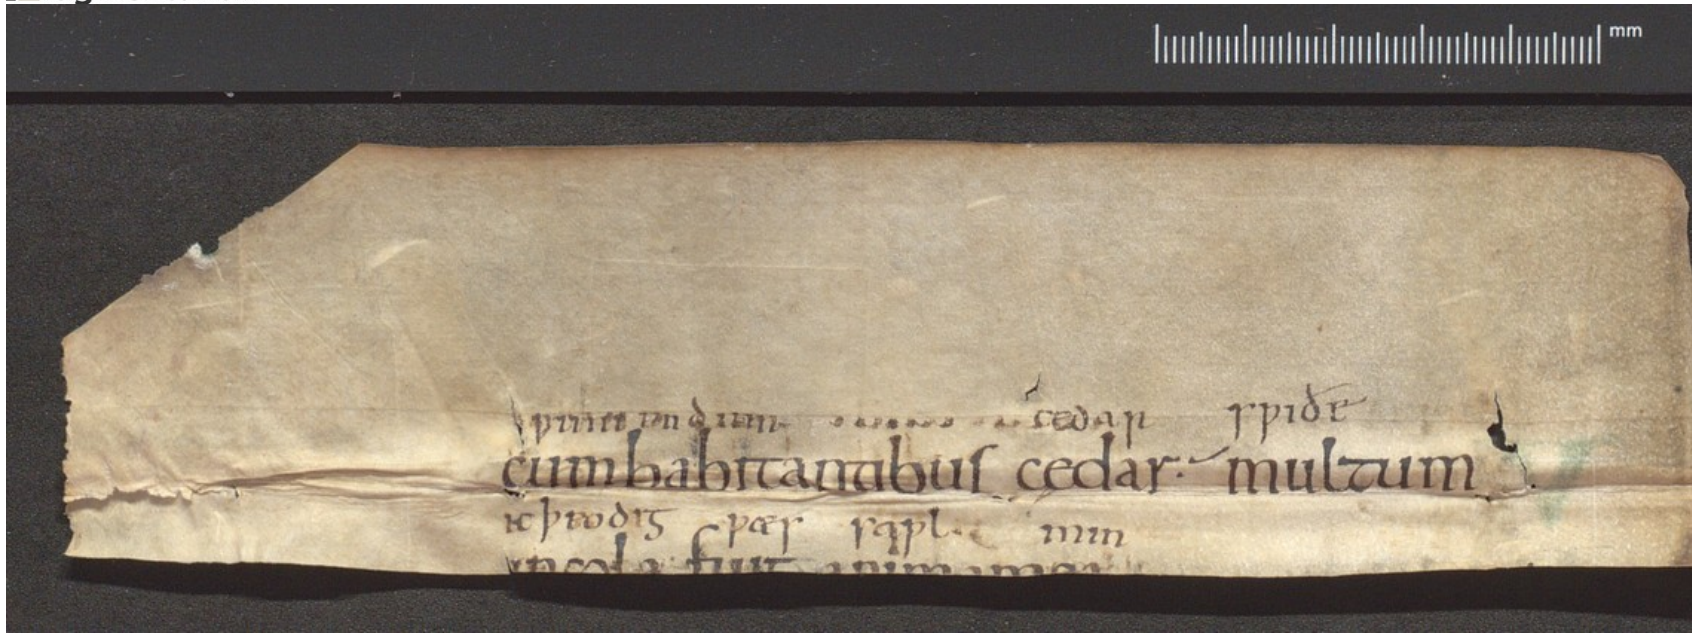 mm
cedar sƿiðe
cum habitantibus cedar· multum
ƿæs saƿl min
incola fuit anima mea